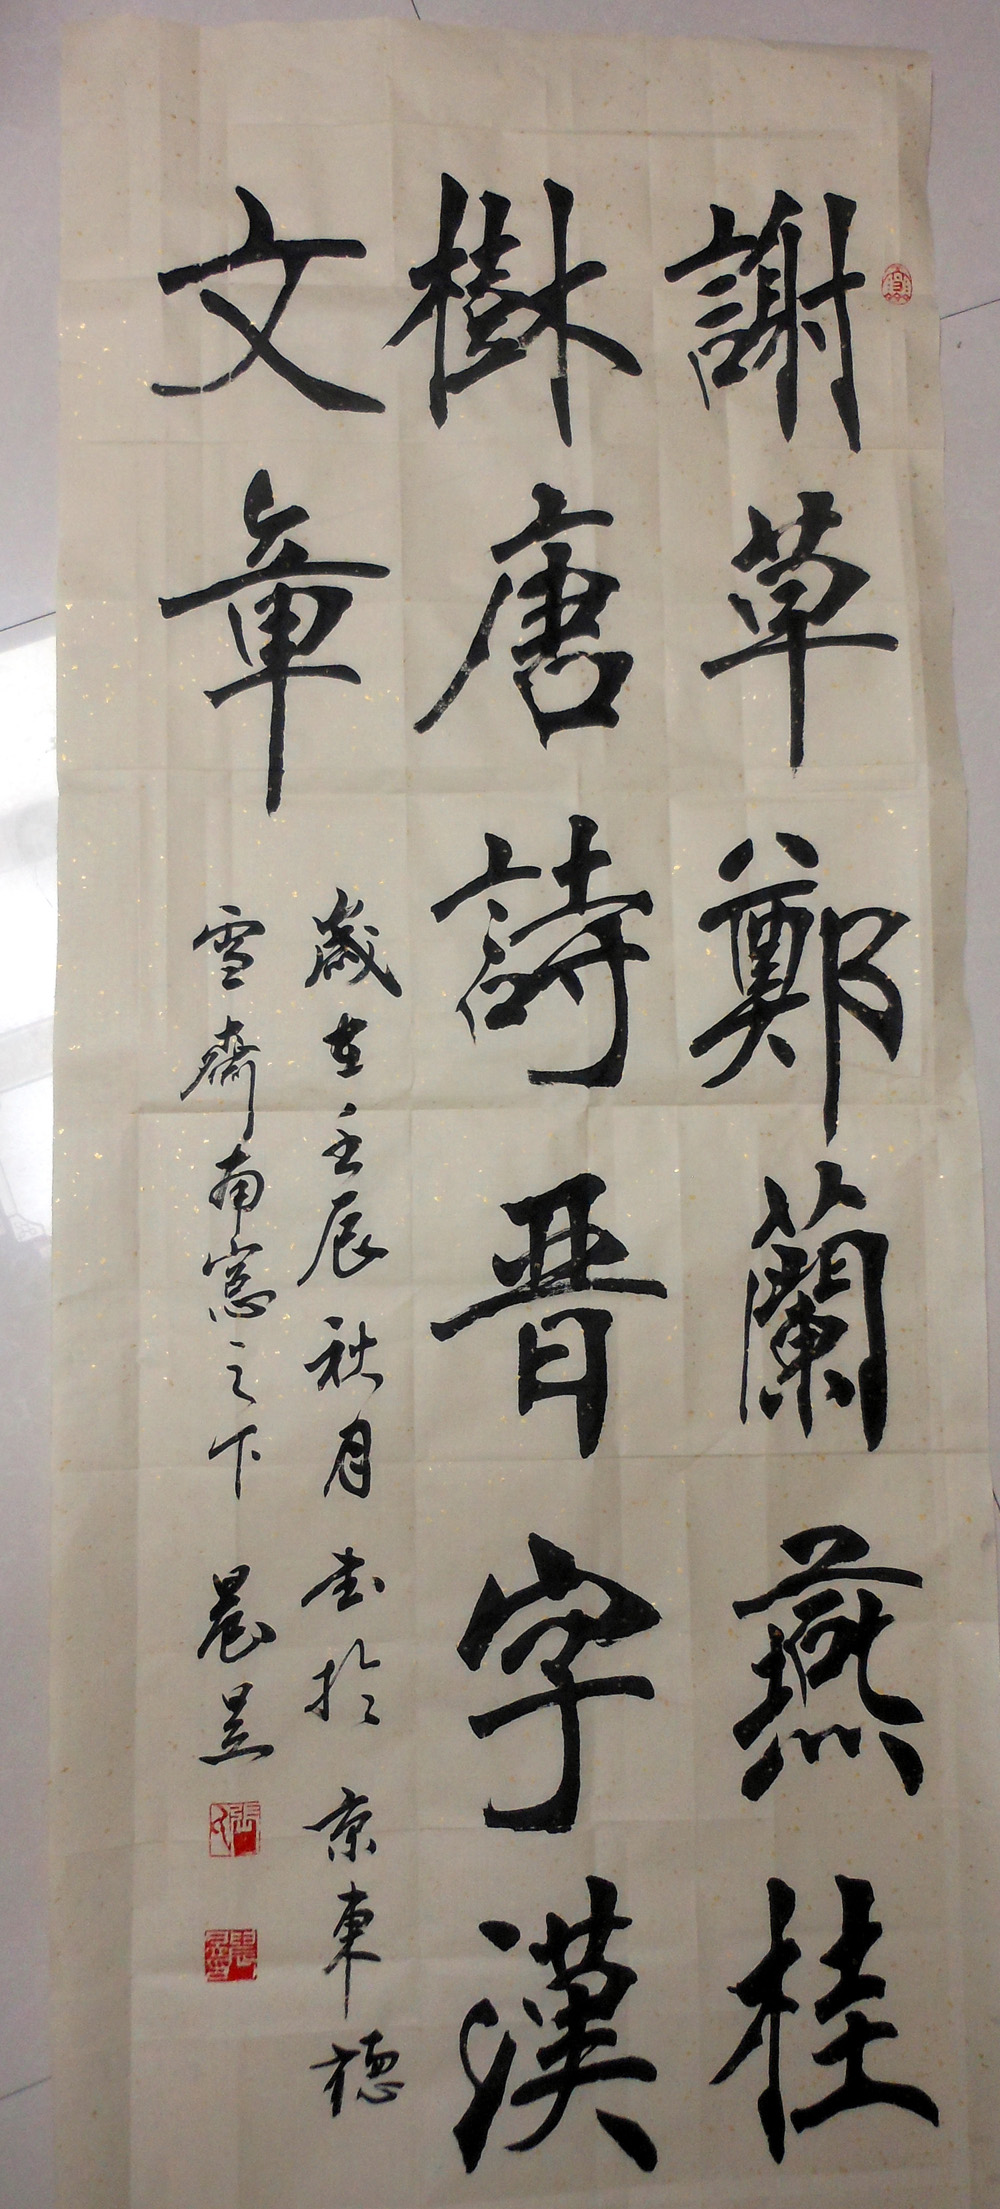 謝草鄭蘭燕桂
樹唐詩晉字漢
文章
歲在壬辰秋月書於京東德
雪齋南窗之下 晨昱